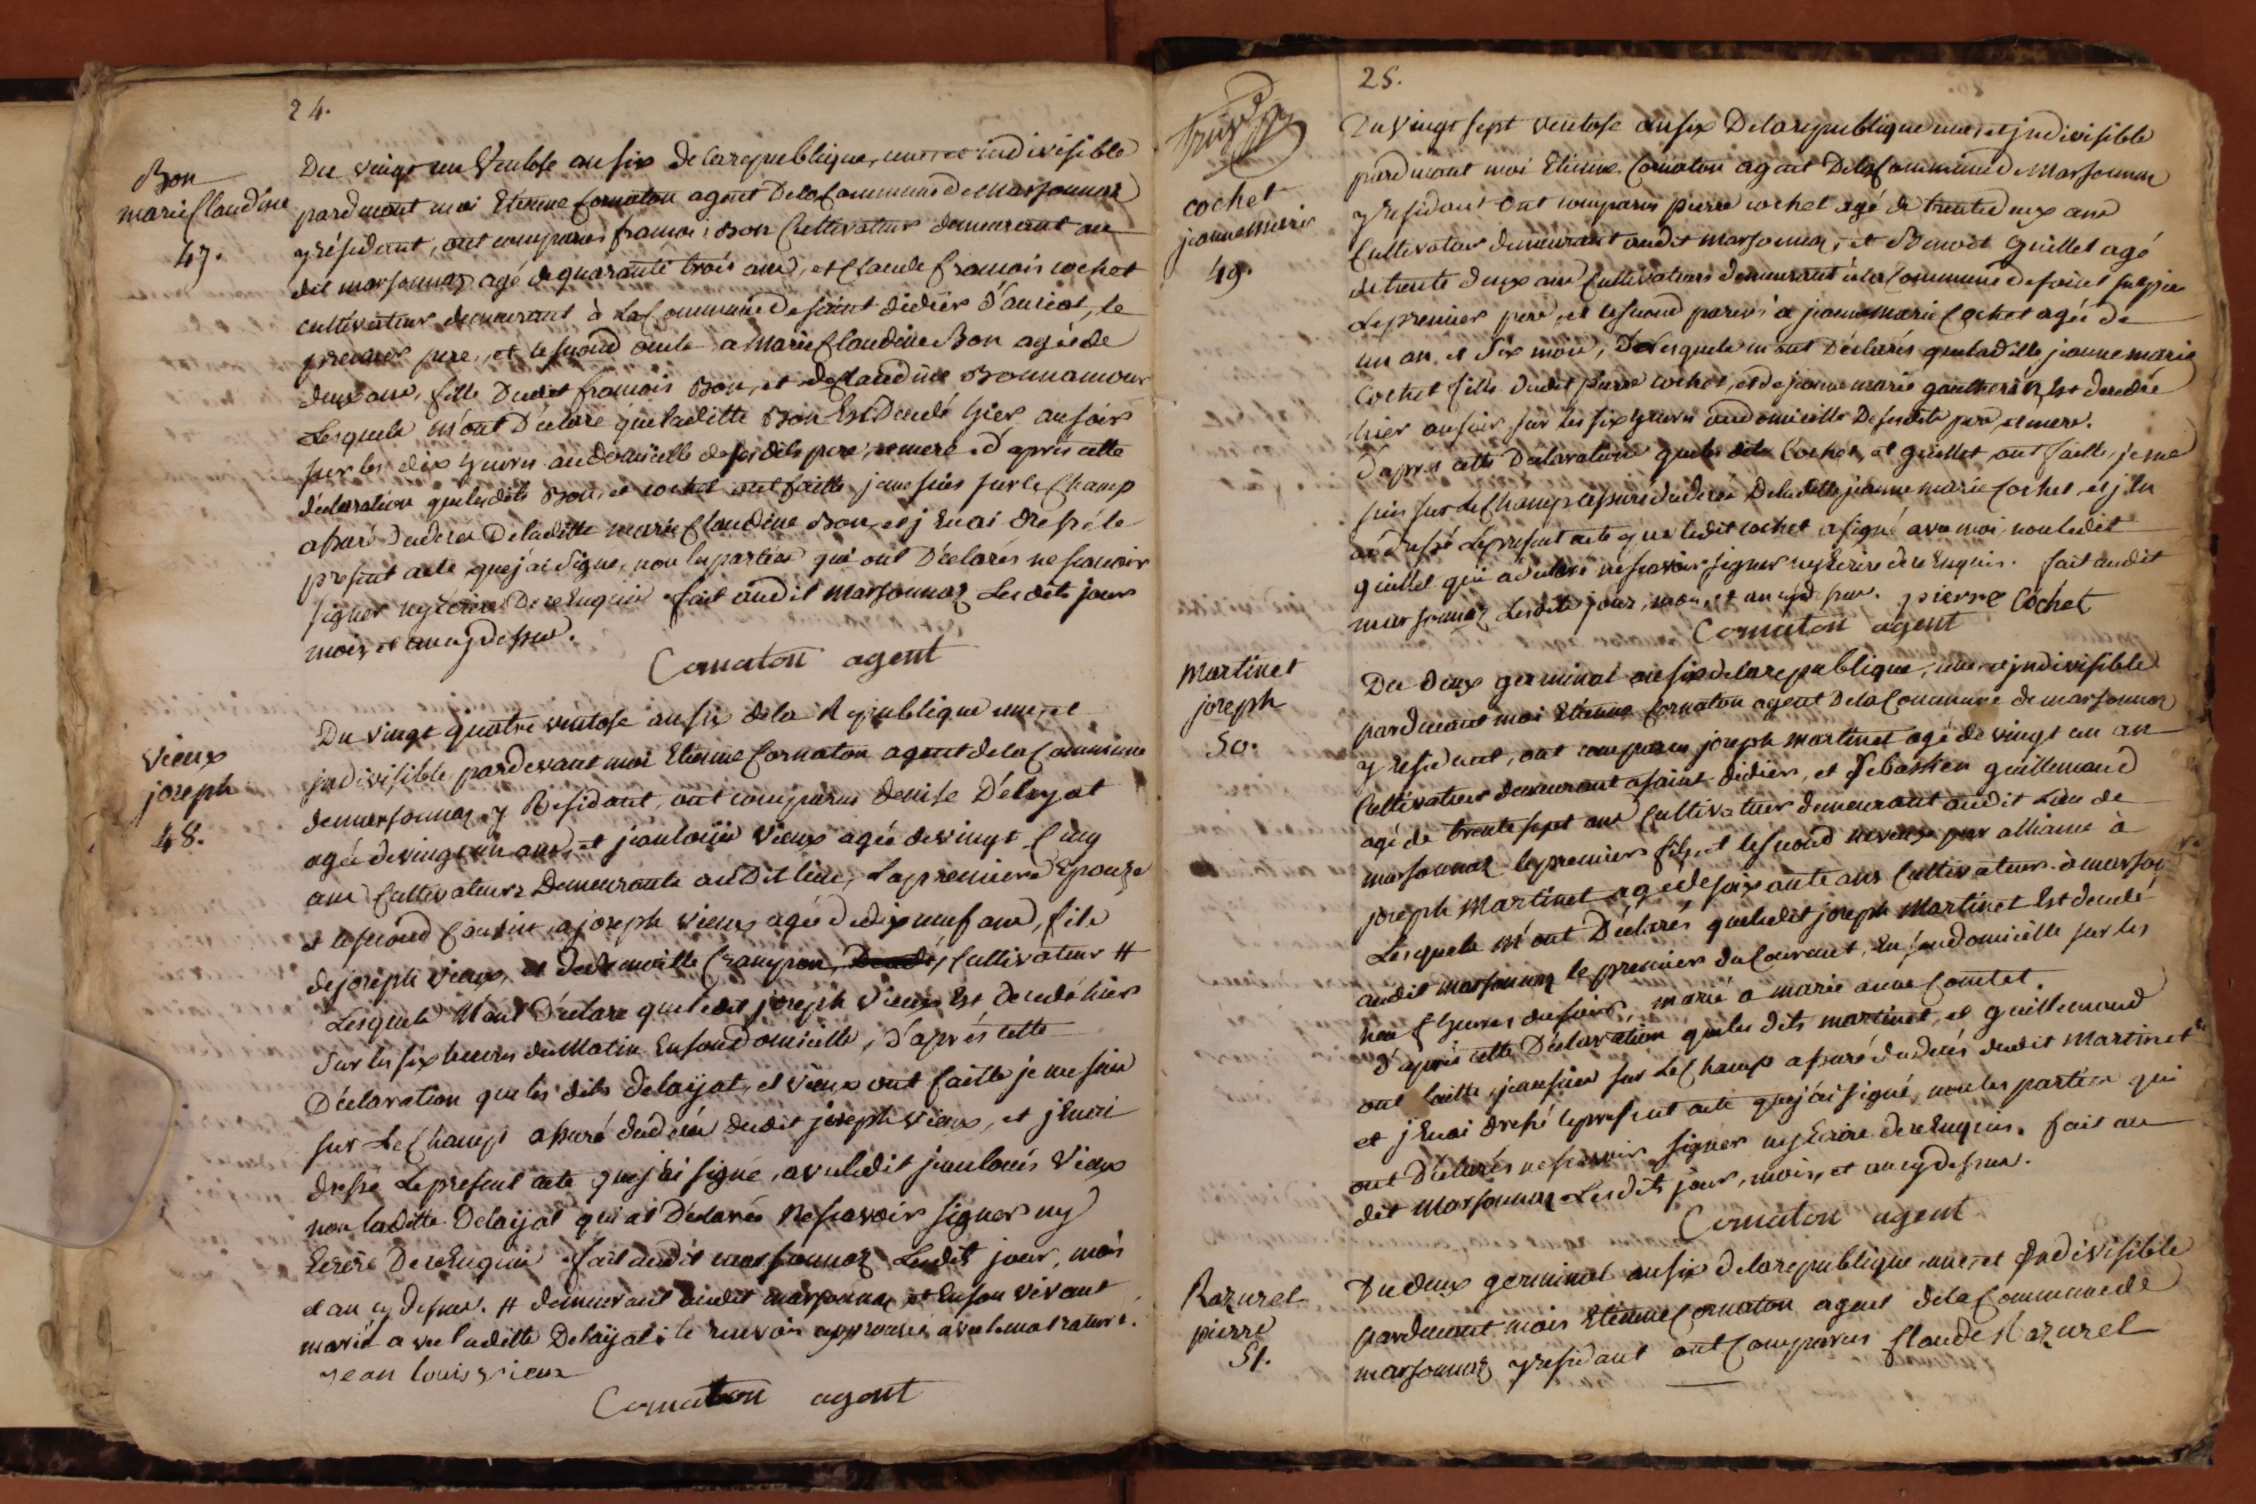 24.
Bon
marie Claudine
47.
Du vingt un Ventose an six de la republique, une et indivisible
pardevant moi Etienne Cornaton agent De la Commune de Marsonnaz
y résidant, ont comparus francois Bon Cultivateur demeurant au
dit marsonnaz agé de quarante trois ans, et Claude francois cochet
cultivateur demeurant à La Commune de saint didier d'aussiat, le
premier pere, et le second oncle a Marie Claudine Bon agée de
deux ans, fille Dudit francois Bon, et de Claudine Bonnamour
Lesquels m'ont Déclaré que laditte Bon Est Decedé hier au soir
sur les dix heures au domicille de ses dits pere, et mere. d'après cette
déclaration que lesdits Bon, et cochet ont faitte, je me suis sur le Champ
assuré du deces De laditte marie Claudine Bon, et j'En ai dressé le
present acte que j'ai signé, non les parties qui ont Déclarés ne scavoir
signer ny Ecrire De ce Enquis. fait audit Marsonnaz Les dits jour
mois et an cy dessus.
Cornaton agent
Vieux
joseph
48.
Du vingt quatre ventose an six de la Republique une et
indivisible, pardevant moi Etienne Cornaton agent de la Commune
de marsonnaz y Residant, ont comparus denise Délayat
agée de vingt un ans, et jean louis Vieux agée de vingt Cinq
ans Cultivateurs Demeurants au Dit lieu, La premiere Epouze
et le second Cousin a joseph Vieux agée de dix neuf ans, fils
de joseph Vieux, et de Crampon, Decedé, Cultivateur #
Lesquels M'ont Déclaré que ledit joseph Vieux Est Decedé hier
sur les six heures du Matin En son Domicille, d'après cette
Déclaration que les dits delaÿat, et Vieux ont faitte je me suis
sur Le Champ assuré du decès dudit joseph Vieux, et j'En ai
dressé Le present acte que j'ai signé, avec ledit jean louis Vieux
non laditte Delaÿat qui at Déclarée Ne scavoir signer ny
Ecrire De ce Enquis fait audit marsonnaz Lesdit jour, mois
et an cy dessus. # demeurant audit marsonnaz et En son vivant
marié avec laditte Delaÿat; le renvois approuvés avec la rature.
jean louis vieux
Cornaton agent
25.
cochet
jeanne marie
49.
Du Vingt sept Ventose an six De la republique une et jndivisible
pardevant moi Etienne Cornaton agent De la Commune de Marsonnaz
y residant ont comparus pierre cochet agé de trente deux ans
Cultivateur demeurant audit marsonnaz, et Benoit Guillet agé
de trente deux ans Cultivateurs demeurant à la Commune de saint sulpice
Le premier pere, et le second parein à jeanne marie Cochet agée de
un an, et six mois, Desquels m'ont Déclarés que laditte jeanne marie
Cochet fille dudit pierre cochet, et de jeanne marie gautherin Est decedée
hier au soir sur les six heures au domicille De ses dits pere, et mere.
d'après cette Declaration que les dits Cochet, et guillet ont faitte, je me
suis sur Le Champ assuré du decès De laditte jeanne marie Cochet, et j'En
ai dressé Le present acte que ledit cochet a signé avec moi, non ledit
guillet qui a declaré ne scavoir signer ny Ecrire de ce Enquis. fait audit
marsonnaz Lesdits jour, mois, et an cy dessus. pierre Cochet
Cornaton agent
Martinet
joseph
50.
Du deux germinal an six de la republique, une et jndivisible
pardevant moi Etienne Cornaton agent De la Commune de marsonnaz
y residant, ont comparus joseph Martinet agé de vingt un an
Cultivateur demeurant a saint didier, et Sebastien guillemaud
agé de trente sept ans Cultivateur demeurant audit Lieu de
marsonnaz le premier fils, et le second neveux par alliance à
joseph Martinet agé de soixante ans Cultivateur à marson
Lesquels M'ont Déclarés que ledit joseph Martinet Est decedé
audit marsonnaz le premier du Courant, En son domicille sur les
neuf heures du soir, marié a marie anne Comtet.
D'après cette Déclaration que les dits martinet, et guillemaud
ont faitte, je me suis sur Le Champ assuré du decès dudit Martinet
et j'En ai dressé le present acte que j'ai signé, non les parties qui
ont Déclarés ne scavoir signer ny Ecrire de ce Enquis. fait au
dit Marsonnaz Lesdits jour, mois, et an cy dessus.
Cornaton agent
Razurel
pierre
51.
Du deux germinal an six de la republique une et jndivisible
pardevant mois Etienne Cornaton agent de la Commune de
marsonnaz y residant ont Comparus Claude Razurel